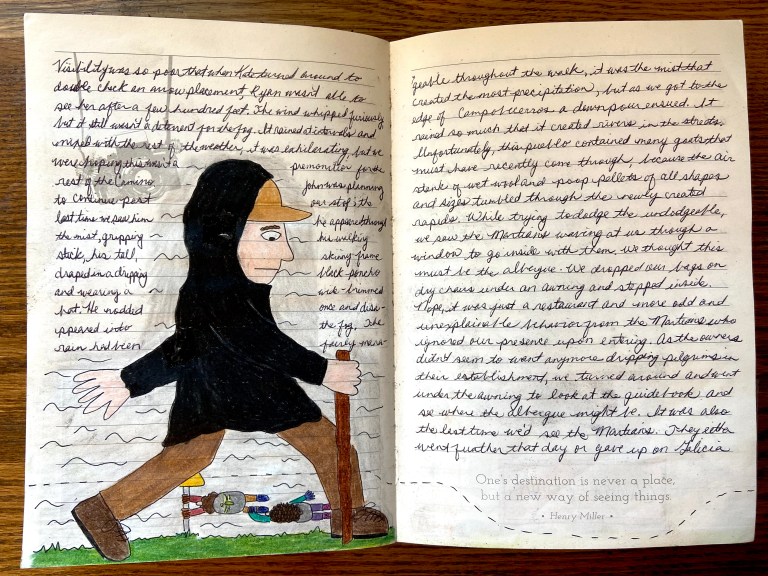 Visibility was so poor that when Kate turned around to
double check an arrow placement Ryan wasn't able to
see her after a few hundred feet. The wind whipped furiously
but it still wasn't a deterent for the fog. It rained at intervals and
mixed with the rest of the weather, it was exhilerating, but we
were hoping this wasn't a premonition for the
rest of the Camino. John was planning
to continue past our stop & the
last time we saw him he appeared through
the mist, gripping his walking
stick, his tall, skinny frame
draped in a dripping black poncho
and wearing a wide-brimmed
hat. He nodded once and disa-
ppeared into the fog. The
rain had been fairly man-
ageable throughout the week, it was the mist that
created the most precipitation, but as we got to the
edge of Campobecerros a downpour ensued. It
rained so much that it created rivers in the streets.
Unfortunately, this pueblo contained many goats that
must have recently come through, because the air
stank of wet wool and poop pellets of all shapes
and sizes tumbled through the newly created
rapids. While trying to dodge the undodgeable,
we saw the Martians waving at us through a
window to go inside with them. We thought this
must be the albergue. We dropped our bags on
dry chairs under an awning and stepped inside.
Nope, it was just a restaurant and more odd and
unexplainable behavior from the Martians who
ignored our presence upon entering. As the owners
didn't seem to want anymore dripping pilgrims in
their establishment, we turned around and went
under the awning to look at the guidebook and
see where the albergue might be. It was also
the last time we'd see the Martians. They either
went further that day or gave up on Galicia
One's destination is never a place,
but a new way of seeing things.
• Henry Miller •